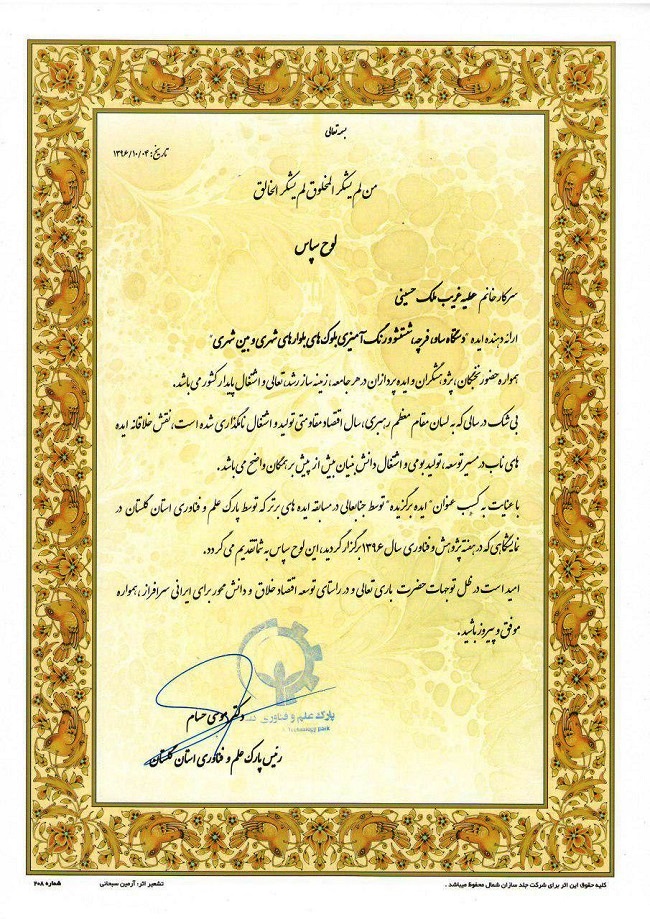 بسمه تعالی
تاریخ: ۱۳۹۶/۱۰/۰۴
من لم یشکر المخلوق لم یشکر الخالق
لوح سپاس
سرکار خانم عطیه غریب ملک حسینی
ارائه دهنده ایده "دستگاه ساده فرچه، شستشو و رنگ آمیزی بلوک های بلوارهای شهری و بین شهری"
همواره حضور نخبگان، پژوهشگران و ایده پردازان در هر جامعه، زمینه ساز رشد، تعالی و اشتغال پایدار کشور می باشد.
بی شک در سالی که به لسان مقام معظم رهبری، سال اقتصاد مقاومتی تولید و اشتغال نامگذاری شده است، نقش خلاقانه ایده
های ناب در مسیر توسعه، تولید بومی و اشتغال دانش بنیان بیش از پیش بر همگان واضح می باشد.
با عنایت به کسب عنوان "ایده برگزیده" توسط جنابعالی در مسابقه ایده های برتر که توسط پارک علم و فناوری استان گلستان در
نمایشگاهی که در هفته پژوهش و فناوری سال ۱۳۹۶ برگزار گردید، این لوح سپاس به شما تقدیم می گردد.
امید است در ظل توجهات حضرت باری تعالی و در راستای توسعه اقتصاد خلاق و دانش محور برای ایرانی سرافراز، همواره
موفق و پیروز باشید.
پارک علم و فناوری
Technology park
دکتر موسی حسام
رئیس پارک علم و فناوری استان گلستان
کلیه حقوق این اثر برای شرکت جلد سازان شمال محفوظ میباشد.
تشعیر اثر: آرمین سبحانی
شماره ۲۰۸